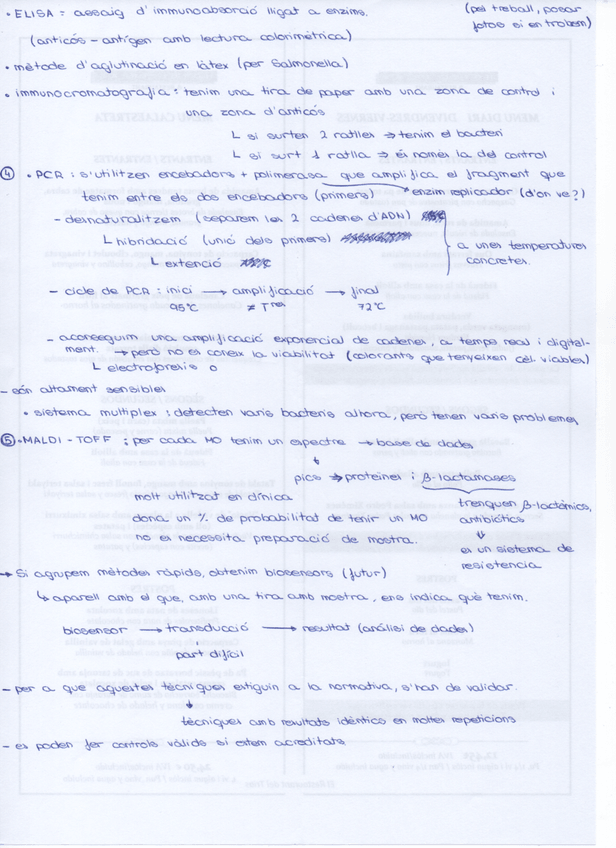 • ELISA = assaig d'immunoabsorció lligat a enzims. (pel treball, posar
(anticòs - antígen amb lectura colorimètrica) fotos si en trobem)
• mètode d'aglutinació en làtex (per Salmonella)
• immunocromatografia: tenim una tira de paper amb una zona de control i
una zona d'anticòs
↳ si surten 2 ratlles ⇒ tenim el bacteri
↳ si surt 1 ratlla ⇒ és només la del control
④ • PCR: s'utilitzen encebadors + polimerasa que amplifica el fragment que
tenim entre els dos encebadors (primers) → enzim replicador (d'on ve?)
- desnaturalitzem (separem les 2 cadenes d'ADN)
↳ hibridació (unió dels primers) a unes temperatures
↳ extenció concretes.
- cicle de PCR: inici → amplificació → final
95ºC ≠ Tres 72ºC
- aconseguim una amplificació exponencial de cadenes, a temps real i digital-
ment. → però no es coneix la viabilitat (colorants que tenyeixen cèl. viables)
↳ electroforesis o
- són altament sensibles
• sistema multiplex: detecten varis bacteris alhora, però tenen varis problemes
⑤ • MALDI - TOFF: per cada MO tenim un espectre → base de dades
↓
pics → proteïnes i β-lactamases
molt utilitzat en clínica trenquen β-lactàmics,
dona un % de probabilitat de tenir un MO antibiòtics
no es necessita preparació de mostra. ⇓
es un sistema de
→ Si agrupem mètodes ràpids, obtenim biosensors (futur) resistencia
↳ aparell amb el que, amb una tira amb mostra, ens indica què tenim.
biosensor → transducció → resultat (anàlisi de dades)
part difícil
- per a que aquestes tècniques estiguin a la normativa, s'han de validar.
↓
tècniques amb resultats idèntics en moltes repeticions
- es poden fer controls vàlids si estem acreditats